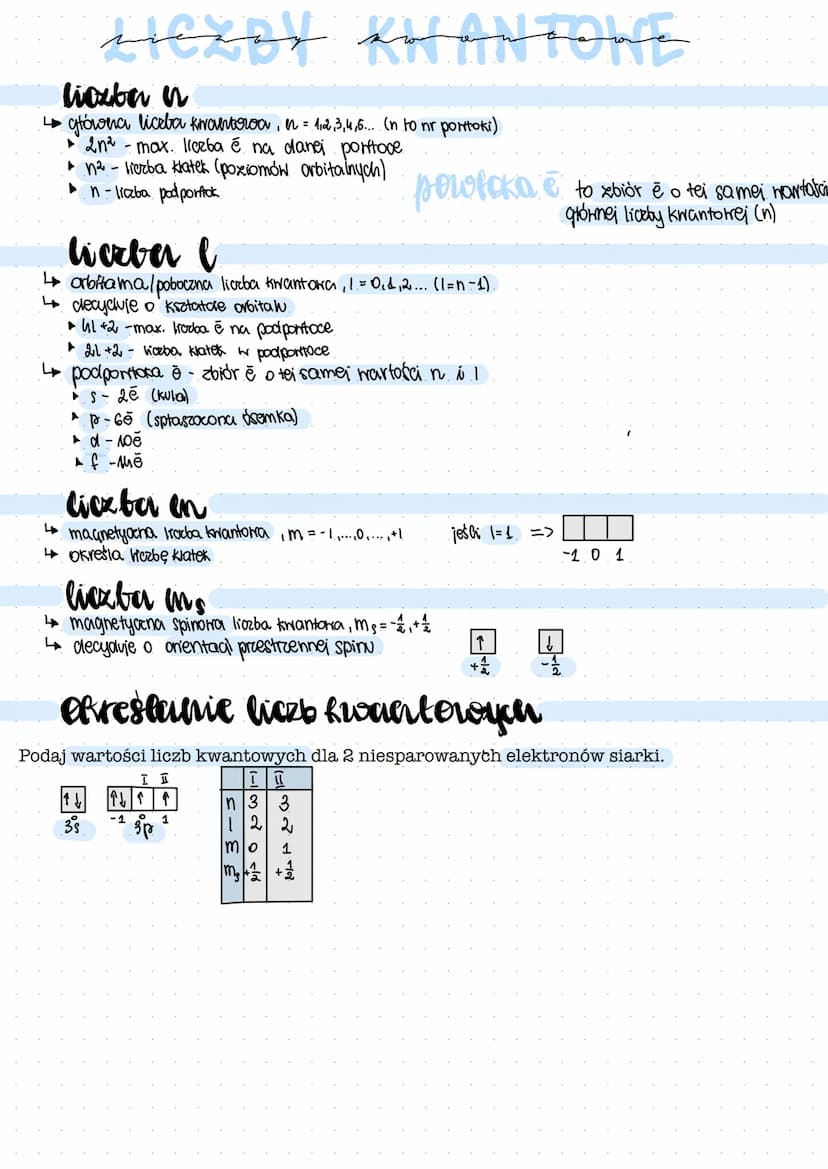 LICZBY KWANTOWE
liczby kwantowe
liczba n
↳ główna liczba kwantowa, n = 1,2,3,4,5... (n to nr powłoki)
▸ 2n² - max. liczba ē na danej powłoce
▸ n² - liczba klatek (poziomów orbitalnych)
▸ n - liczba podpowłok
powłoka ē to zbiór ē o tej samej wartości
głównej liczby kwantowej (n)
liczba l
↳ orbitalna/poboczna liczba kwantowa, l = 0,1,2... (l=n-1)
↳ decyduje o kształcie orbitalu
▸ 4l+2 - max. liczba ē na podpowłoce
▸ 2l+2 - liczba klatek w podpowłoce
↳ podpowłoka ē - zbiór ē o tej samej wartości n i l
▸ s - 2ē (kula)
▸ p - 6ē (spłaszczona ósemka)
▸ d - 10ē
▸ f - 14ē
liczba m
↳ magnetyczna liczba kwantowa, m = -l,...,0,...,+l jeśli l=1 =>
↳ określa liczbę klatek
-1 0 1
liczba mₛ
↳ magnetyczna spinowa liczba kwantowa, mₛ = -½, +½
↳ decyduje o orientacji przestrzennej spinu ↑ ↓
+½ -½
określanie liczb kwantowych
Podaj wartości liczb kwantowych dla 2 niesparowanych elektronów siarki.
I II
↑↓ ↑↓ ↑ ↑
-1 0 1
3s 3p
I II
n 3 3
l 2 2
m 0 1
mₛ +½ +½